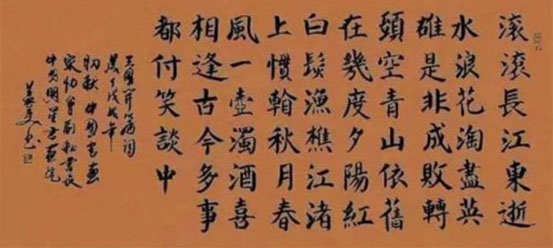 滚滚長江東逝
水浪花淘盡英
雄是非成敗轉
頭空青山依舊
在幾度夕陽紅
白髮漁樵江渚
上慣翰秋月春
風一壺濁酒喜
相逢古今多事
都付笑談中
三國開篇詞
戊戌年
初秋中國書畫
家協會副秘書長
中國明星書畫院